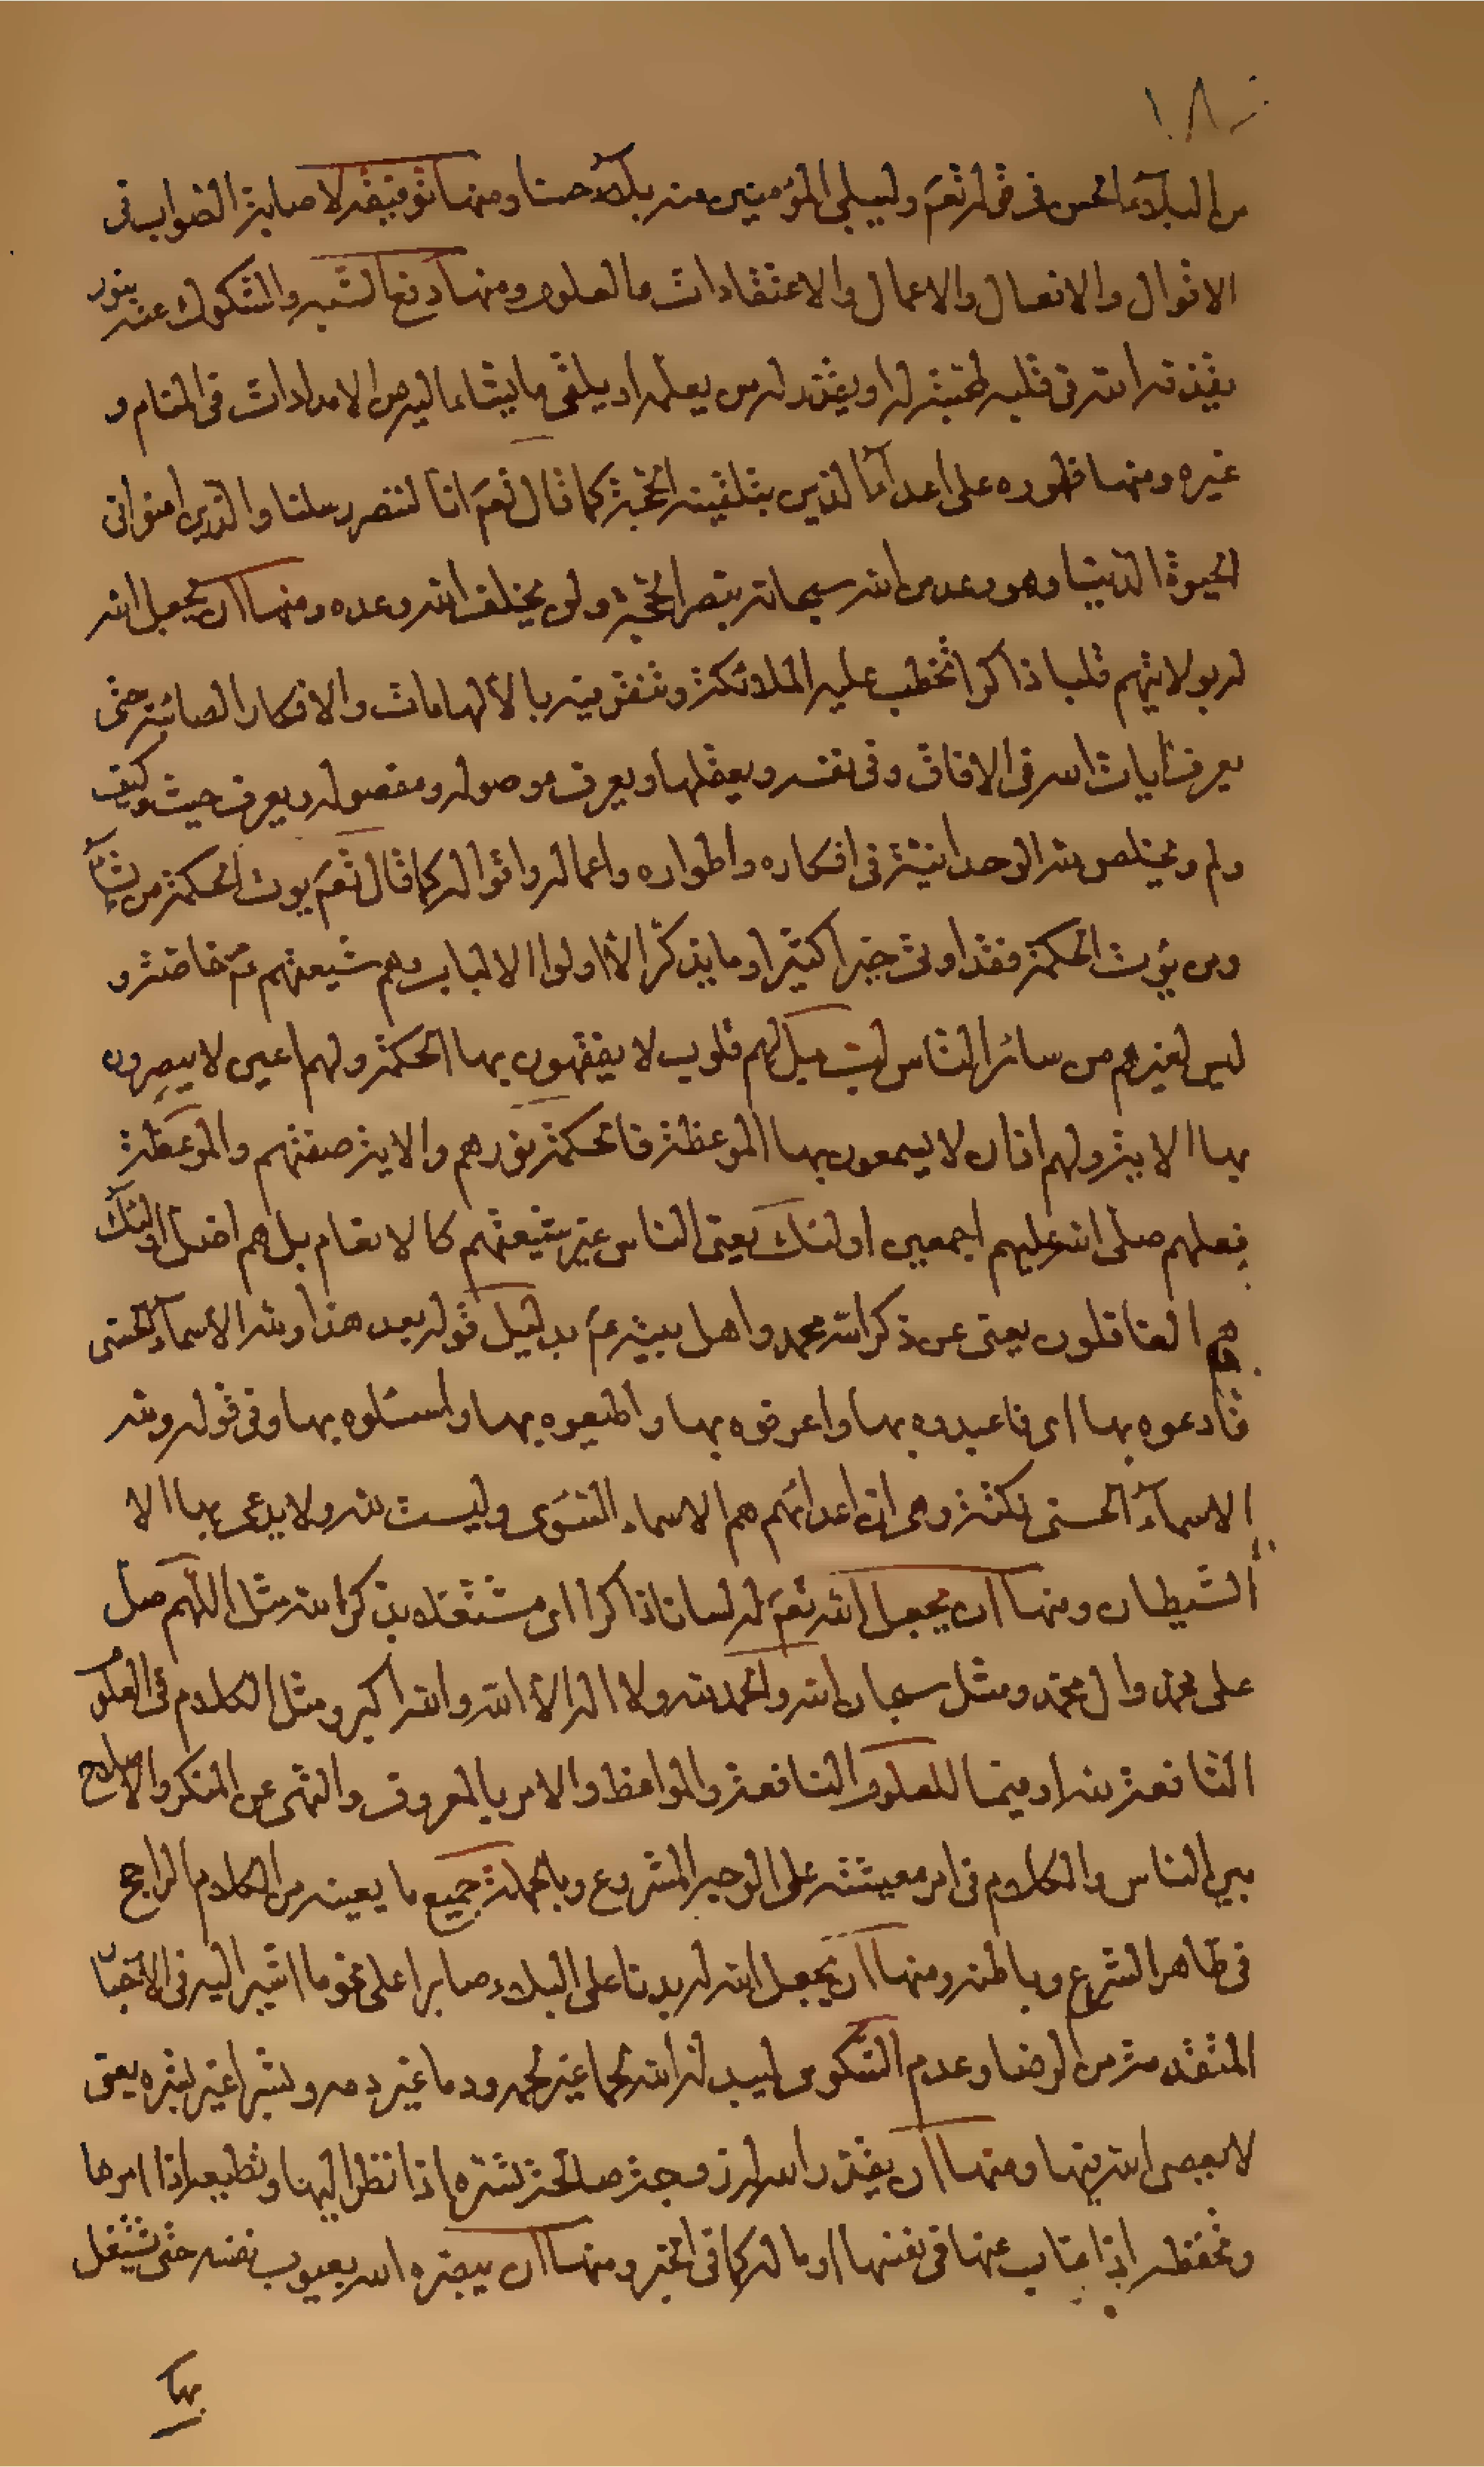 ١٨٠
من البلاء الحسن في قوله تعم وليبلي المؤمنين منه بلاء حسنا ومنها توفيقه لاصابة الصواب في
الاقوال والافعال والاعمال والاعتقادات والعلوم ومنها دفع الشبه والشكوك عنه بنور
يقذفه الله في قلبه لمحبته له او يقدر له من يعلمه او يلقى ما يشاء اليه من الامدادات في المنام و
غيره ومنها ظهوره على اعدائه الذين بتلقينه الحجة كما قال تعم انا لننصر رسلنا والذين امنوا في
الحيوة الدنيا وهو وعد من الله سبحانه بنصر الحجة ولن يخلف الله وعده ومنها ان يجعل الله
له بولايتهم قلبا ذاكرا تخطب عليه الملائكة وتنقر فيه بالالهامات والافكار الصائبة حتى
يعرف ايات الله في الافاق وفي نفسه ويعقلها ويعرف موصوله ومفصوله ويعرف حيث وكيف
ولم ويخلص لله الوحدانية في افكاره واطواره واعماله واقواله كما قال تعم يوت الحكمة من يشاء
ومن يؤت الحكمة فقد اوتي خيرا كثيرا وما يذكر الا اولوا الالباب وهم شيعتهم عم خاصة و
ليس لغيرهم من سائر الناس لب بل لهم قلوب لا يفقهون بها الحكمة ولهم اعين لا يبصرون
بها الاية ولهم اذان لا يسمعون بها الموعظة فالحكمة نورهم والاية صفتهم والموعظة
فعلهم صلى الله عليهم اجمعين اولئك يعنى الناس غير شيعتهم كالانعام بل هم اضل اولئك
هم الغافلون يعنى عن ذكر الله محمد واهل بيته عم بدليل قوله بعد هذا ولله الاسماء الحسنى
فادعوه بها اى فاعبدوه بها واعرفوه بها واطيعوه بها واسئلوه بها وفي قوله ولله
الاسماء الحسنى نكتة وهى ان اعدائهم هم الاسماء السوى وليست لله ولا يدعى بها الا
الشيطان ومنها ان يجعل الله تعم له لسانا ذاكرا اى مشتغلا بذكر الله مثل اللهم صل
على محمد وال محمد ومثل سبحان الله والحمد لله ولا اله الا الله والله اكبر ومثل الكلام في العلوم
النافعة لله او فيما للعلوم النافعة والمواعظ والامر بالمعروف والنهى عن المنكر والاصلاح
بين الناس والكلام في امر معيشته على الوجه المشروع وبالجملة جميع ما يعينه من الكلام الراجح
في ظاهر الشرع وباطنه ومنها ان يجعل الله له بدنا على البلاء صابرا على نحو ما اشير اليه في الاخبار
المتقدمة من الرضا وعدم الشكوى ليبدله الله لحما غير لحمه ودما غير دمه وبشرا غير بشره يعنى
لا يعصى الله فيها ومنها ان يقدر الله له زوجة صالحة تسره اذا نظر اليها وتطيعه اذا امرها
وتحفظه اذا غاب عنها في نفسها وماله كما في الخبر ومنها ان يبصره الله بعيوب نفسه حتى تشتغل
بها